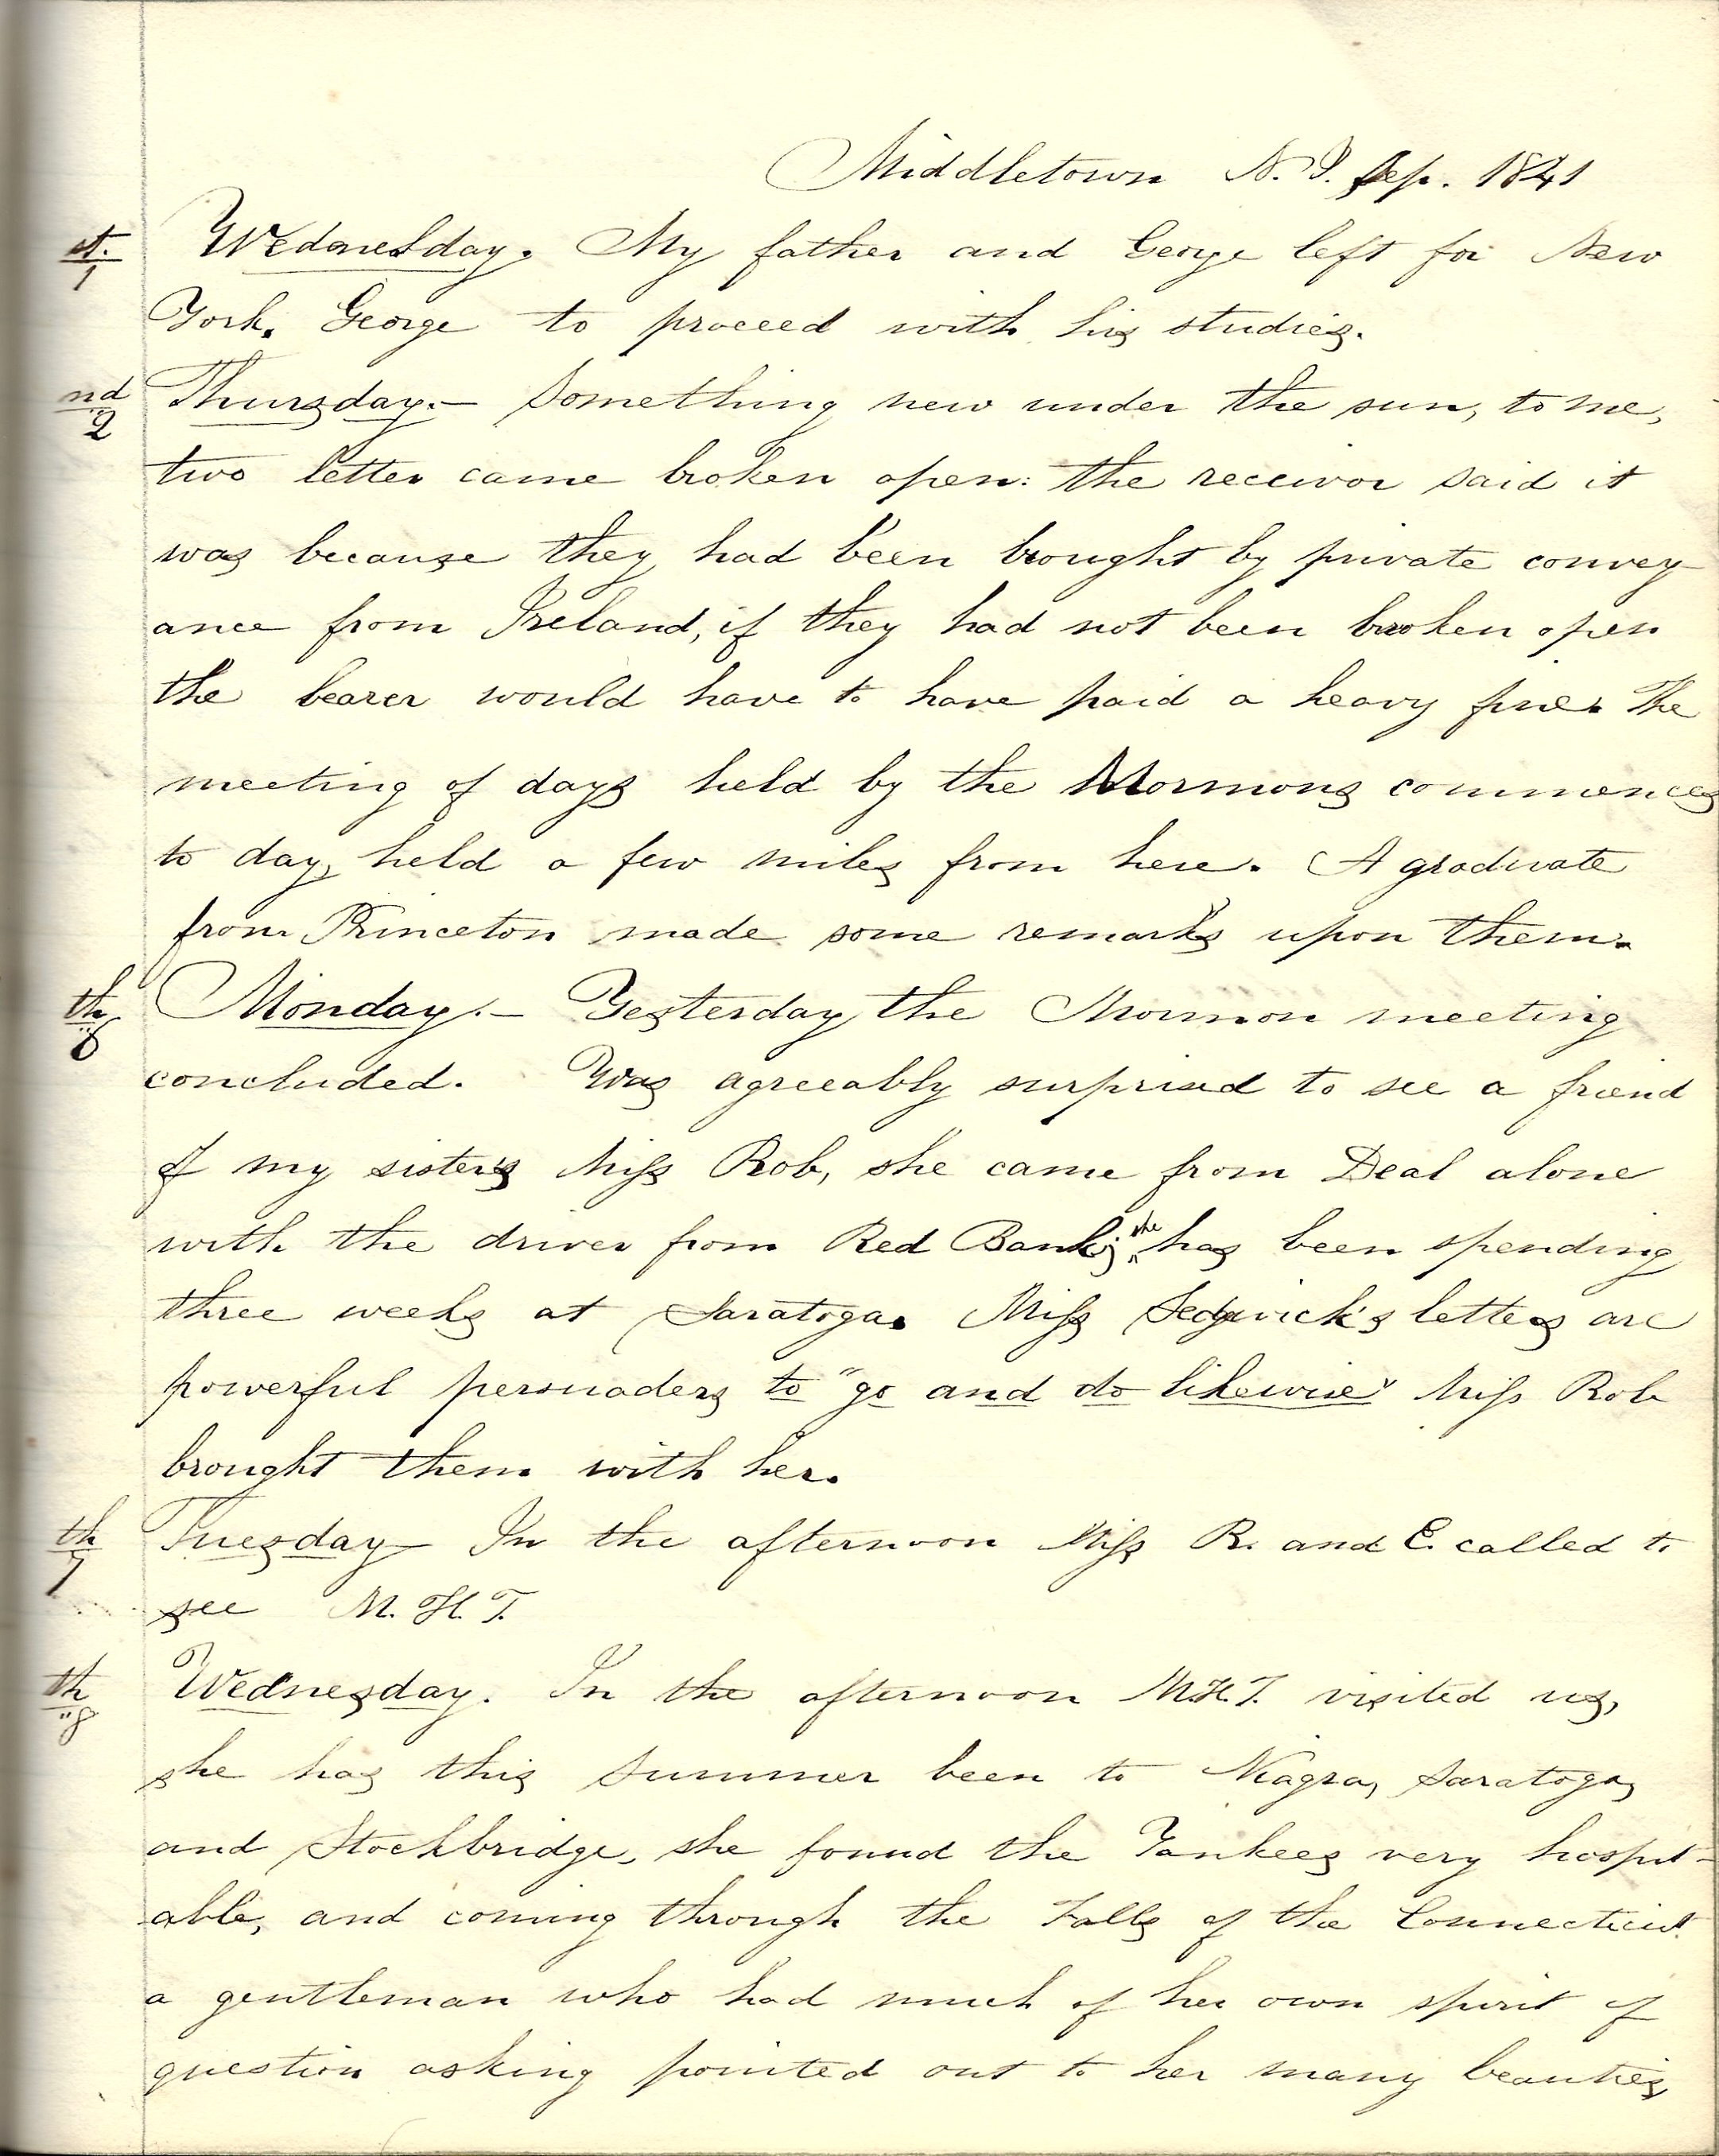 Middletown N. J. Sep. 1841
st. 1 Wednesday. My father and George left for New
York. George to proceed with his studies.
nd 2 Thursday.— Something new under the sun, to me,
two letter came broken open: the receivor said it
was because they had been brought by private convey-
ance from Ireland, if they had not been broken open
the bearer would have to have paid a heavy fine. The
meeting of days held by the Mormons commences
to day, held a few miles from here. A graduate
from Princeton made some remarks upon them.
th 6 Monday.— Yesterday, the Mormon meeting
concluded. Was agreeably surprised to see a friend
of my sister's Miss Rob, she came from Deal alone
with the driver from Red Bank; she has been spending
three weeks at Saratoga. Miss Sedgwick's letters are
powerful persuaders to "go and do likewise" Miss Rob
brought them with her.
th 7 Tuesday— In the afternoon Miss R. and E. called to
see M. H. T.
th 8 Wednesday. In the afternoon M.H.T. visited us,
she has this summer been to Niagra, Saratoga,
and Stockbridge, she found the Yankees very hospit-
able, and coming through the Falls of the Connecticut
a gentleman who had much of her own spirit of
question asking pointed out to her many beauties,